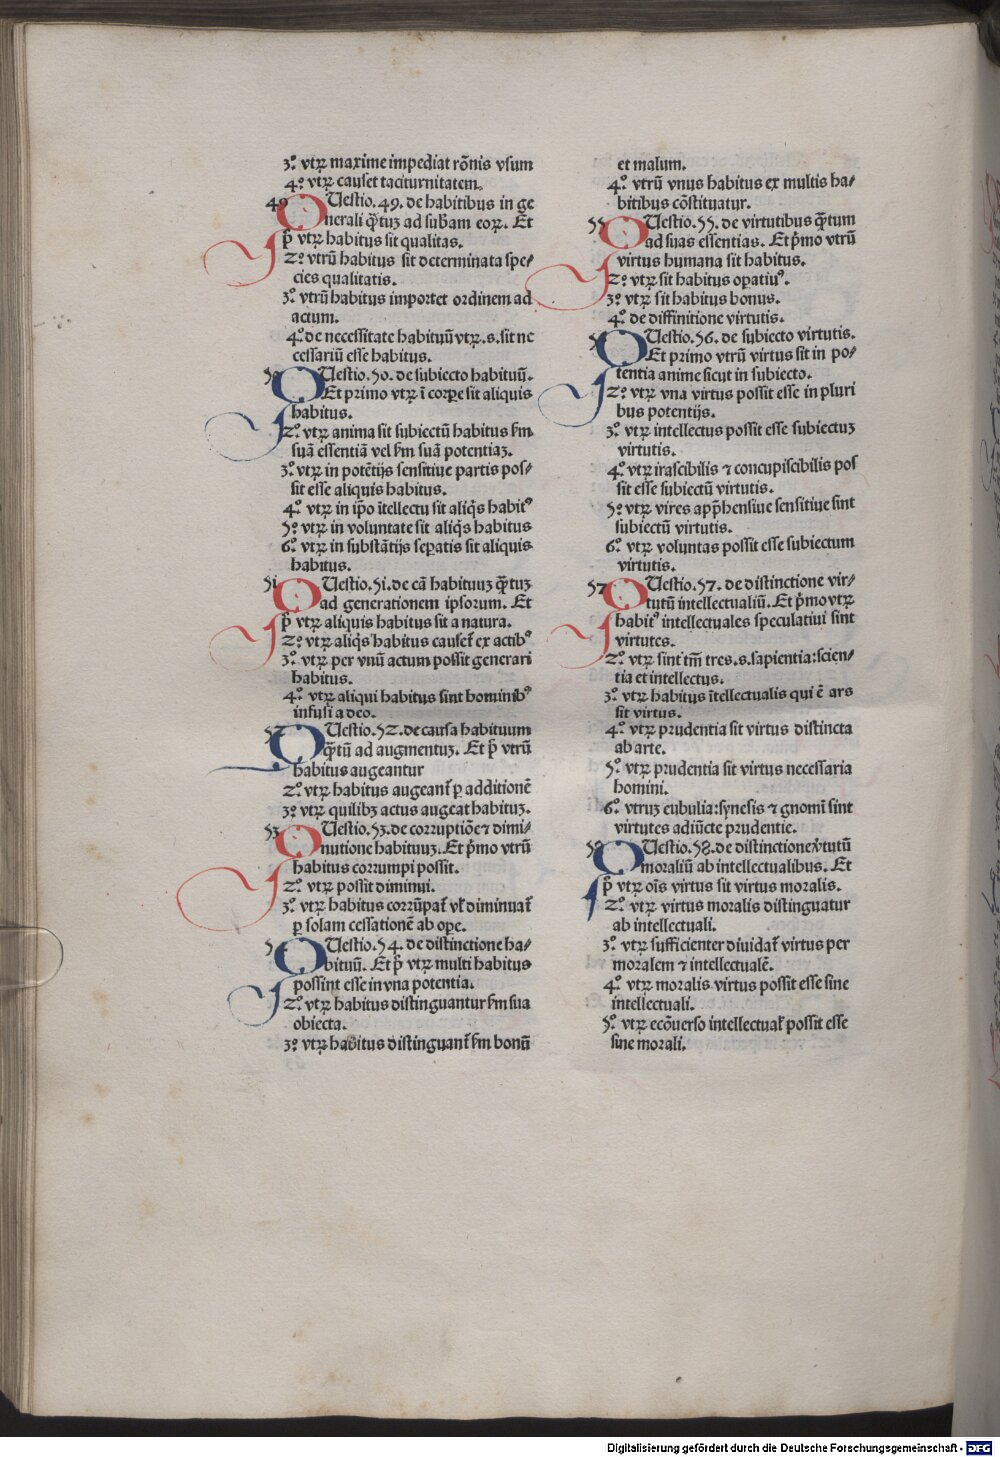 3º vtꝝ maxime impediat rōnis vsum
4º vtꝝ causet taciturnitatem.
49 QUestio.49. de habitibus in ge
nerali q̄tuꝫ ad subam eoꝝ. Et
p̄ vtꝝ habitus sit qualitas.
2º vtrū habitus sit determinata spe-
cies qualitatis.
3º vtrū habitus importet ordinem ad
actum.
4º de necessitate habituū vtꝝ.s.sit ne
cessariū esse habitus.
50 QUestio.50. de subiecto habituū.
Et primo vtꝝ ī corpe sit aliquis
habitus.
2º vtꝝ anima sit subiectū habitus fm
suā essentiā vel fm suā potentiaꝫ.
3º vtꝝ in potētijs sensitiue partis pos-
sit esse aliquis habitus.
4º vtꝝ in ip̄o ītellectu sit aliq̄s habitꝰ
5º vtꝝ in voluntate sit aliq̄s habitus
6º vtꝝ in substātijs sepatis sit aliquis
habitus.
51 QUestio.51. de cā habituuꝫ q̄tuꝫ
ad generationem ipsorum. Et
p̄ vtꝝ aliquis habitus sit a natura.
2º vtꝝ aliq̄s habitus causet̄ ex actibꝰ
3º vtꝝ per vnū actum possit generari
habitus.
4º vtꝝ aliqui habitus sint hominibꝰ
infusi a deo.
52 QUestio.52. de causa habituum
q̄tū ad augmentuꝫ. Et p̄ vtrū
habitus augeantur
2º vtꝝ habitus augeant̄ ꝑ additionē
3º vtꝝ quilibꝫ actus augeat habituꝫ.
53 QUestio.53. de corruptiōe ⁊ dimi-
nutione habituuꝫ. Et p̄mo vtrū
habitus corrumpi possit.
2º vtꝝ possit diminui.
3º vtꝝ habitus corrūpat̄ vl̄ diminuat̄
ꝑ solam cessationē ab ope.
54 QUestio.54. de distinctione ha-
bituū. Et p̄ vtꝝ multi habitus
possint esse in vna potentia.
2º vtꝝ habitus distinguantur fm sua
obiecta.
3º vtꝝ habitus distinguant̄ fm bonū
et malum.
4º vtrū vnus habitus ex multis ha-
bitibus cōstituatur.
55 QUestio.55. de virtutibus q̄tum
ad suas essentias. Et p̄mo vtrū
virtus humana sit habitus.
2º vtꝝ sit habitus opatiuꝰ.
3º vtꝝ sit habitus bonus.
4º de diffinitione virtutis.
QUestio.56. de subiecto virtutis.
Et primo vtrū virtus sit in po-
tentia anime sicut in subiecto.
2º vtꝝ vna virtus possit esse in pluri
bus potentijs.
3º vtꝝ intellectus possit esse subiectuꝫ
virtutis.
4º vtꝝ irascibilis ⁊ concupiscibilis pos
sit esse subiectū virtutis.
5º vtꝝ vires app̄hensiue sensitiue sint
subiectū virtutis.
6º vtꝝ voluntas possit esse subiectum
virtutis.
57 QUestio.57. de distinctione vir-
tutū intellectualiū. Et p̄mo vtꝝ
habitꝰ intellectuales speculatiui sint
virtutes.
2º vtꝝ sint tm̄ tres.s.sapientia:scien-
tia et intellectus.
3º vtꝝ habitus ītellectualis qui ē ars
sit virtus.
4º vtꝝ prudentia sit virtus distincta
ab arte.
5º vtꝝ prudentia sit virtus necessaria
homini.
6º vtruꝫ eubulia:synesis ⁊ gnomi sint
virtutes adiūcte prudentie.
58 QUestio.58. de distinctione v̄tutū
moraliū ab intellectualibus. Et
p̄ vtꝝ oīs virtus sit virtus moralis.
2º vtꝝ virtus moralis distinguatur
ab intellectuali.
3º vtꝝ sufficienter diuidat̄ virtus per
moralem ⁊ intellectualē.
4º vtꝝ moralis virtus possit esse sine
intellectuali.
5º vtꝝ ecōuerso intellectual̄ possit esse
sine morali.
Digitalisierung gefördert durch die Deutsche Forschungsgemeinschaft - DFG